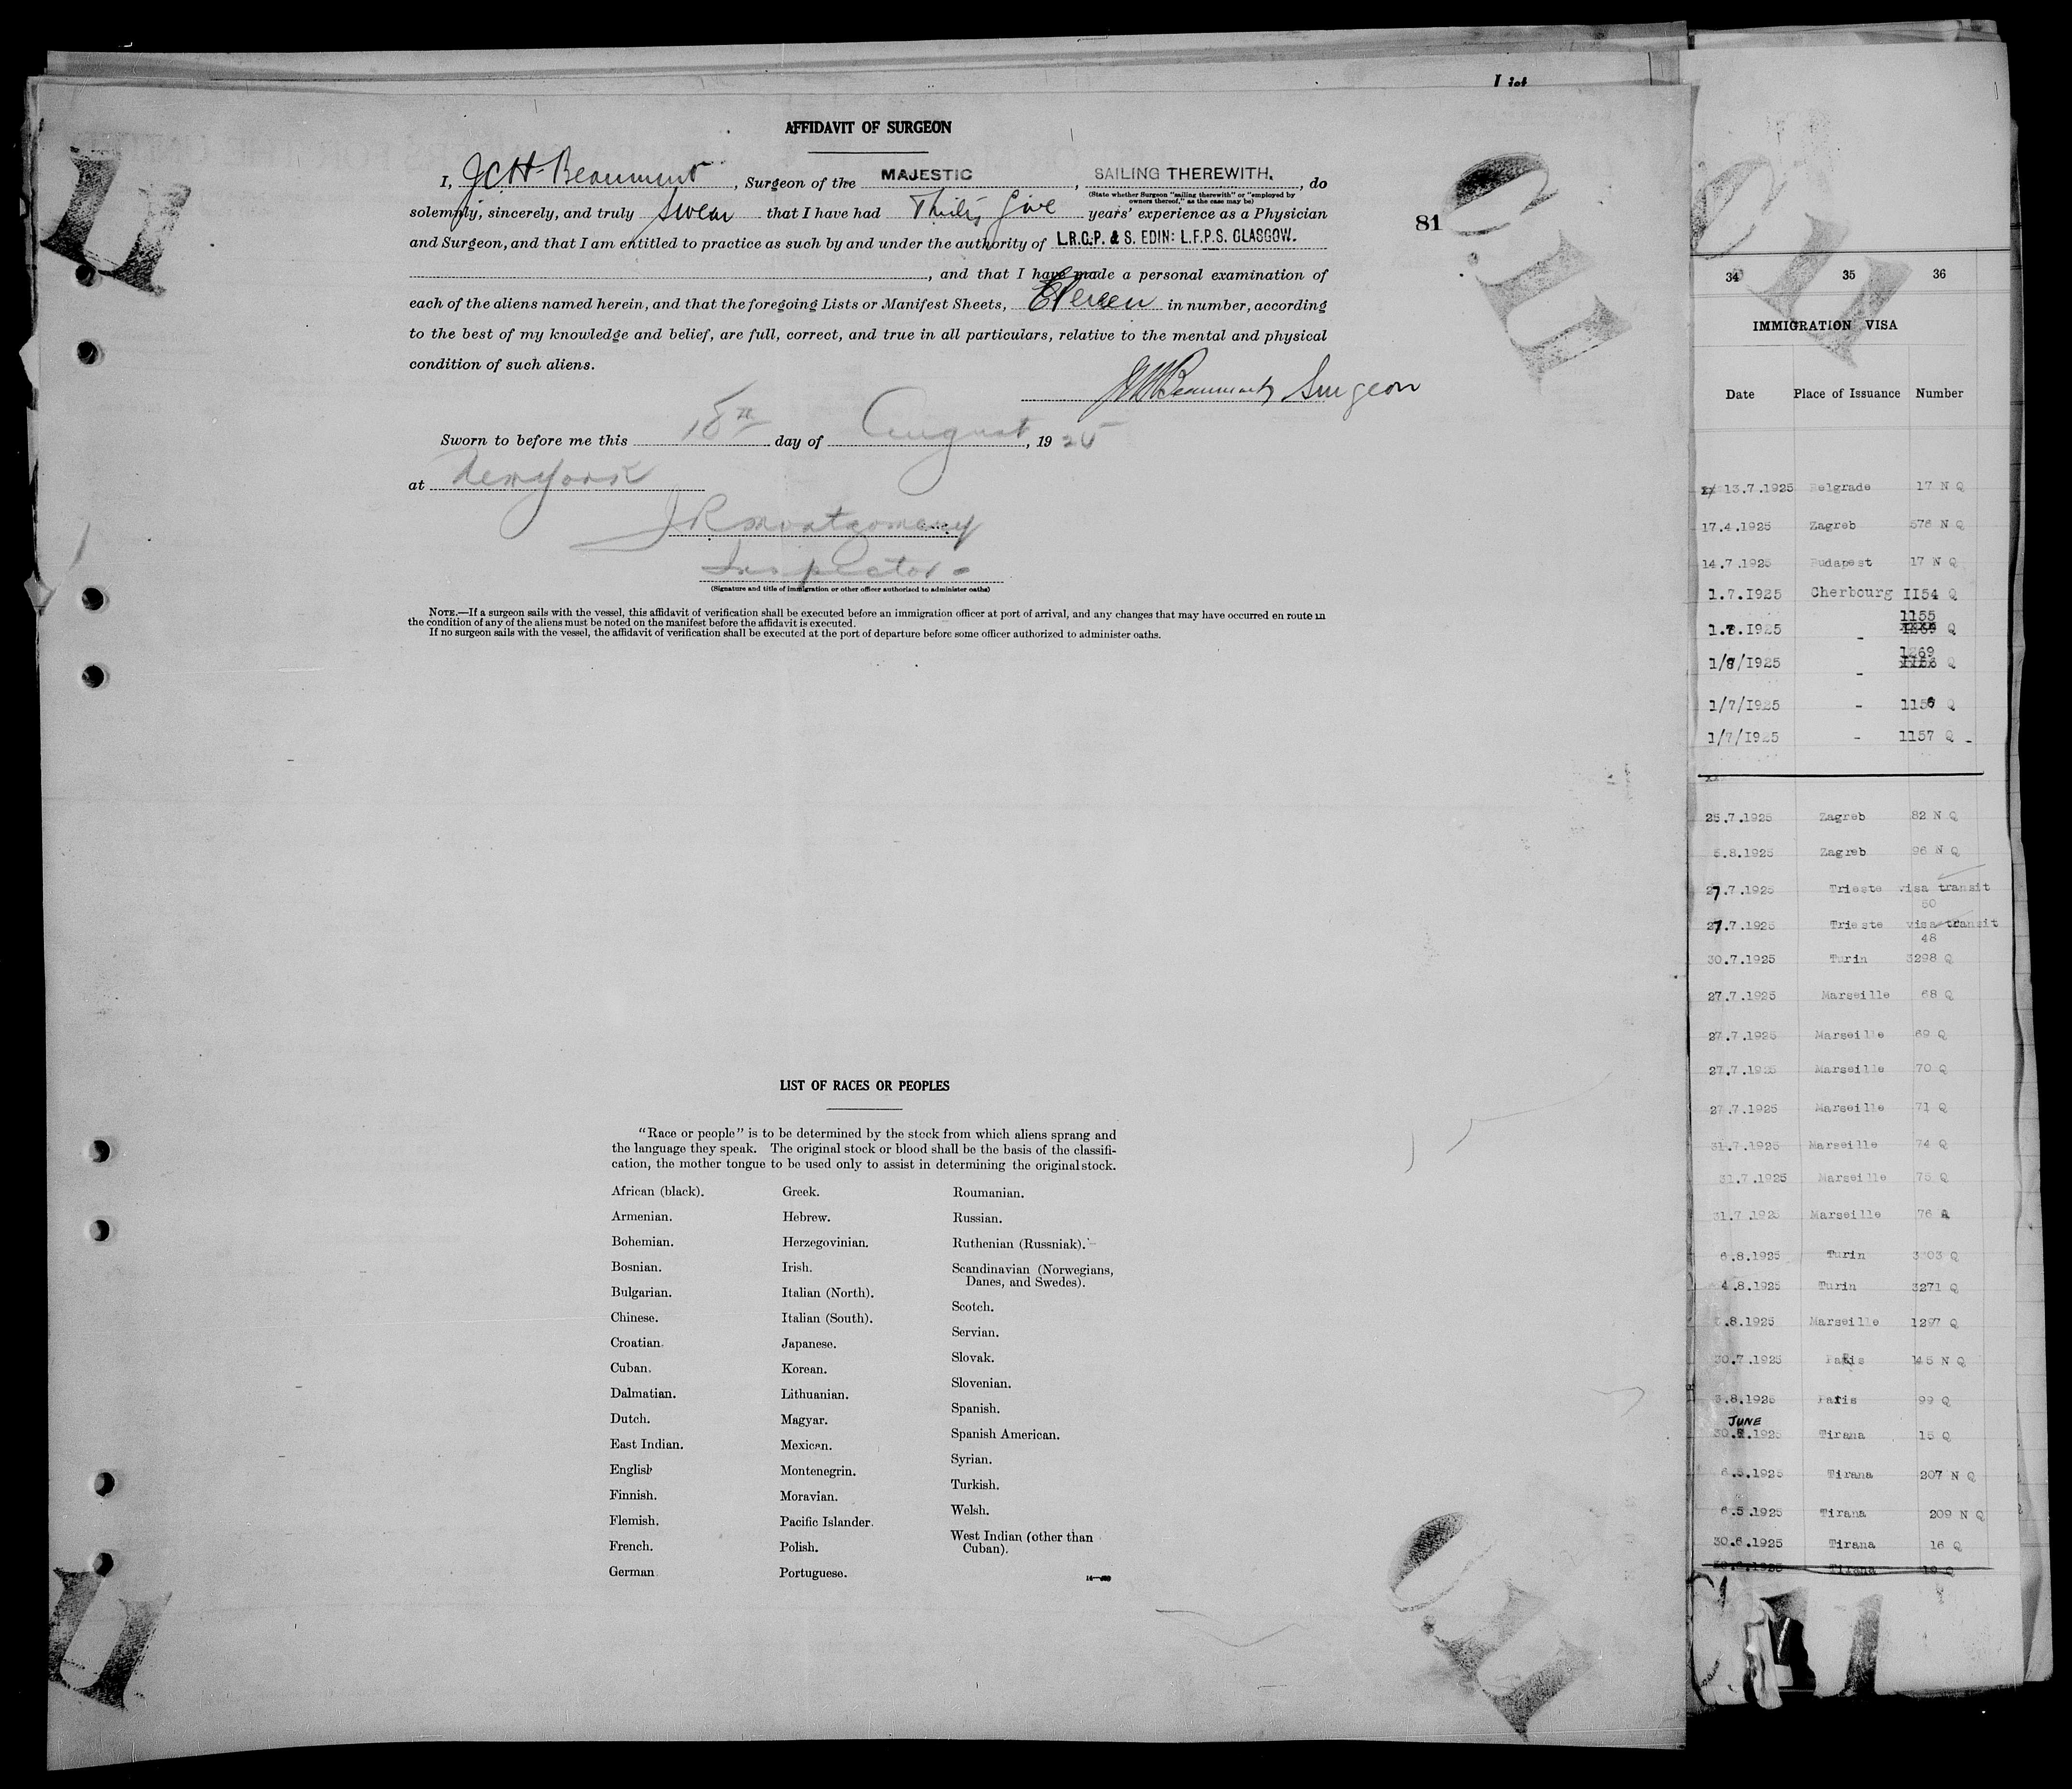 List
AFFIDAVIT OF SURGEON
I, J.C.H. Beaumont, Surgeon of the MAJESTIC, SAILING THEREWITH., do
(State whether Surgeon "sailing therewith" or "employed by
owners thereof," as the case may be)
solemnly, sincerely, and truly swear that I have had Thirty five years' experience as a Physician
81
and Surgeon, and that I am entitled to practice as such by and under the authority of L.R.C.P. & S. EDIN: L.F.P.S. GLASGOW.
, and that I have made a personal examination of
each of the aliens named herein, and that the foregoing Lists or Manifest Sheets, Eleven in number, according
to the best of my knowledge and belief, are full, correct, and true in all particulars, relative to the mental and physical
condition of such aliens.
Beaumont Surgeon
Sworn to before me this 18th day of August, 1925
at New York
J R Montgomery
Inspector
(Signature and title of immigration or other officer authorized to administer oaths)
NOTE.—If a surgeon sails with the vessel, this affidavit of verification shall be executed before an immigration officer at port of arrival, and any changes that may have occurred en route in
the condition of any of the aliens must be noted on the manifest before the affidavit is executed.
If no surgeon sails with the vessel, the affidavit of verification shall be executed at the port of departure before some officer authorized to administer oaths.
LIST OF RACES OR PEOPLES
"Race or people" is to be determined by the stock from which aliens sprang and
the language they speak. The original stock or blood shall be the basis of the classifi-
cation, the mother tongue to be used only to assist in determining the original stock.
African (black).
Armenian.
Bohemian.
Bosnian.
Bulgarian.
Chinese.
Croatian.
Cuban.
Dalmatian.
Dutch.
East Indian.
English
Finnish.
Flemish.
French.
German
Greek.
Hebrew.
Herzegovinian.
Irish.
Italian (North).
Italian (South).
Japanese.
Korean.
Lithuanian.
Magyar.
Mexican.
Montenegrin.
Moravian.
Pacific Islander.
Polish.
Portuguese.
Roumanian.
Russian.
Ruthenian (Russniak).
Scandinavian (Norwegians,
Danes, and Swedes).
Scotch.
Servian.
Slovak.
Slovenian.
Spanish.
Spanish American.
Syrian.
Turkish.
Welsh.
West Indian (other than
Cuban).
34 35 36
IMMIGRATION VISA
Date Place of Issuance Number
13.7.1925 Belgrade 17 N Q
17.4.1925 Zagreb 576 N Q
14.7.1925 Budapest 17 N Q
1.7.I925 Cherbourg II54 Q
1155
1.7.I925 - Q
1269
1/8/I925 - Q
1/7/I925 - 1156 Q
1/7/I925 - 1157 Q -
25.7.1925 Zagreb 82 N Q
5.8.1925 Zagreb 96 N Q
27.7.1925 Trieste visa transit
50
27.7.1925 Trieste visa transit
48
30.7.1925 Turin 3298 Q
27.7.1925 Marseille 68 Q
27.7.1925 Marseille 69 Q
27.7.1925 Marseille 70 Q
27.7.1925 Marseille 71 Q
31.7.1925 Marseille 74 Q
31.7.1925 Marseille 75 Q
31.7.1925 Marseille 76 Q
6.8.1925 Turin 3303 Q
4.8.1925 Turin 3271 Q
.8.1925 Marseille 1297 Q
30.7.1925 Paris 145 N Q
3.8.1925 Paris 99 Q
JUNE
30. .1925 Tirana 15 Q
6.5.1925 Tirana 207 N Q
6.5.1925 Tirana 209 N Q
30.6.1925 Tirana 16 Q
Tirana 19 Q